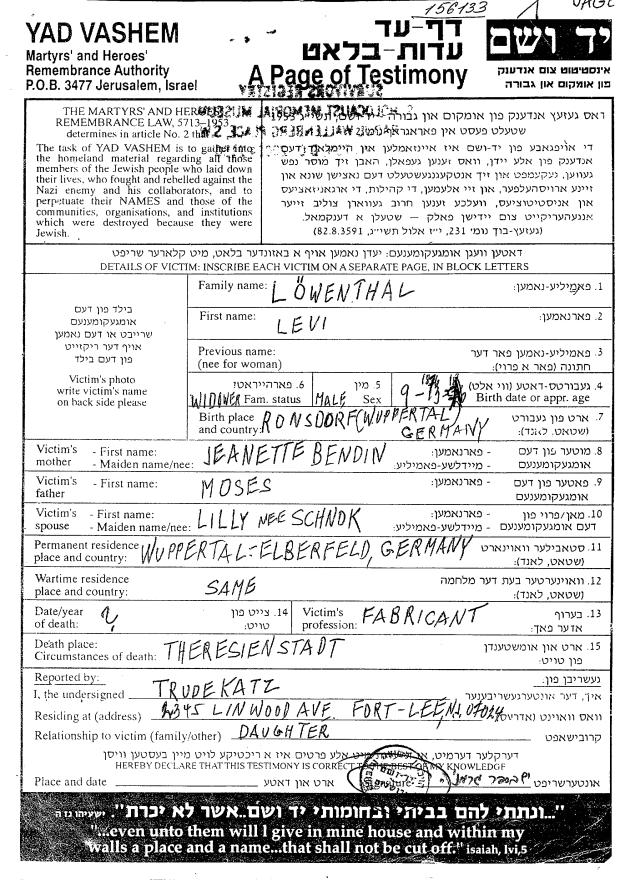 156133
YAD VASHEM
Martyrs' and Heroes'
Remembrance Authority
P.O.B. 3477 Jerusalem, Israel
דף-עד
עדות-בלאט
A Page of Testimony
יד ושם
אינסטיטוט צום אנדענק
פון אומקום און גבורה
THE MARTYRS' AND HEROES'
REMEMBRANCE LAW, 5713–1953
determines in article No. 2 that
The task of YAD VASHEM is to gather into
the homeland material regarding all those
members of the Jewish people who laid down
their lives, who fought and rebelled against the
Nazi enemy and his collaborators, and to
perpetuate their NAMES and those of the
communities, organisations, and institutions
which were destroyed because they were
Jewish.
דאס געזעץ אנדענק פון אומקום און גבורה
שטעלט פעסט אין פאראגראף
די אויפגאבע פון יד-ושם איז איינזאמלען אין היימלאנד דעם
אנדענק פון אלע יידן, וואס זענען געפאלן, האבן זיך מוסר נפש
געווען, געקעמפט און זיך אנטקעגנגעשטעלט דעם נאצישן שונא און
זיינע ארויסהעלפער, און זיי אלעמען, די קהילות, די ארגאניזאציעס
און אינסטיטוציעס, וועלכע זענען חרוב געווארן צוליב זייער
אנגעהעריקייט צום יידישן פאלק – שטעלן א דענקמאל.
דאטען וועגן אומגעקומענעם: יעדן נאמען אויף א באזונדער בלאט, מיט קלארער שריפט
DETAILS OF VICTIM: INSCRIBE EACH VICTIM ON A SEPARATE PAGE, IN BLOCK LETTERS
בילד פון דעם
אומגעקומענעם
שרייבט או דעם נאמען
אויף דער ריקזייט
פון דעם בילד
Victim's photo
write victim's name
on back side please
Family name: LÖWENTHAL 1. פאמיליע-נאמען:
First name: LEVI 2. פארנאמען:
Previous name:
(nee for woman)
3. פאמיליע-נאמען פאר דער
חתונה (פאר א פרוי):
WIDOWER Fam. status 6. פארהייראט?
MALE Sex 5 מין
9-13- 4. געבורטס-דאטע (ווי אלט)
Birth date or appr. age
Birth place
and country: RONSDORF (WUPPERTAL)
GERMANY
7. ארט פון געבורט
(שטאט, לאנד):
Victim's
mother
- First name:
- Maiden name/nee: JEANETTE BENDIN
- פארנאמען:
- מיידלשע-פאמיליע:
8. מוטער פון דעם
אומגעקומענעם
Victim's
father
- First name: MOSES
- פארנאמען:
9. פאטער פון דעם
אומגעקומענעם
Victim's
spouse
- First name:
- Maiden name/nee: LILLY NEE SCHNOK
- פארנאמען:
- מיידלשע-פאמיליע:
10. מאן/פרוי פון
דעם אומגעקומענעם
Permanent residence
place and country: WUPPERTAL-ELBERFELD, GERMANY
11. סטאבילער וואוינארט
(שטאט, לאנד):
Wartime residence
place and country: SAME
12. וואוינערטער בעת דער מלחמה
(שטאט, לאנד):
Date/year
of death: ?
14. צייט פון
טויט:
Victim's
profession: FABRICANT
13. בערוף
אדער פאך:
Death place:
Circumstances of death: THERESIENSTADT
15. ארט און אומשטענדן
פון טויט:
Reported by:
I, the undersigned TRUDE KATZ
געשריבן פון.
איך, דער אונטערגעשריבענער
Residing at (address) 2345 LINWOOD AVE. FORT-LEE NJ 07024 וואס וואוינט (אדרעס)
Relationship to victim (family/other) DAUGHTER קרובישאפט
HEREBY DECLARE THAT THIS TESTIMONY IS CORRECT TO THE BEST OF MY KNOWLEDGE
Place and date ארט און דאטע אונטערשריפט
"...ונתתי להם בביתי ובחומותי יד ושם..אשר לא יכרת". ישעיהו נו ה
"...even unto them will I give in mine house and within my
walls a place and a name...that shall not be cut off." isaiah, lvi,5